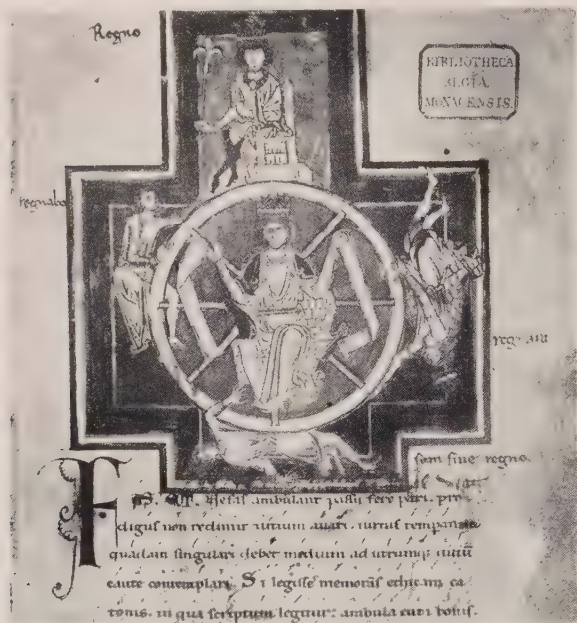 Regno
BIBLIOTHECA
REGIA
MONACENSIS.
regnabo
regnavi
sum sine regno.
ambulant passu fere pari. pro
digus non redimit uitium auari. uirtus
quadam singulari debet medium ad utrumq; uitiū
caute contemplari. Si legisse memoras ethicam ca
tonis. in qua scriptum legitur: ambula cum bonis.